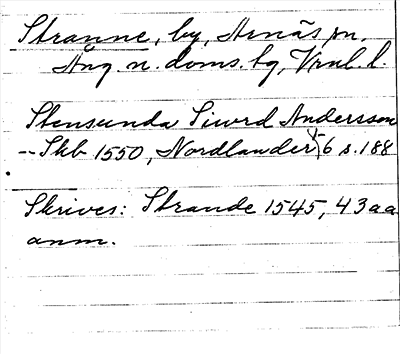 Stranne, by, Arnäs sn.
Ång. n. doms. tg, Vnl. l.
Stensunda Siwrd Andersson
-- Skb 1550, Nordlander 6 s. 188
Skrives: Strande 1545, 43 aa
anm.